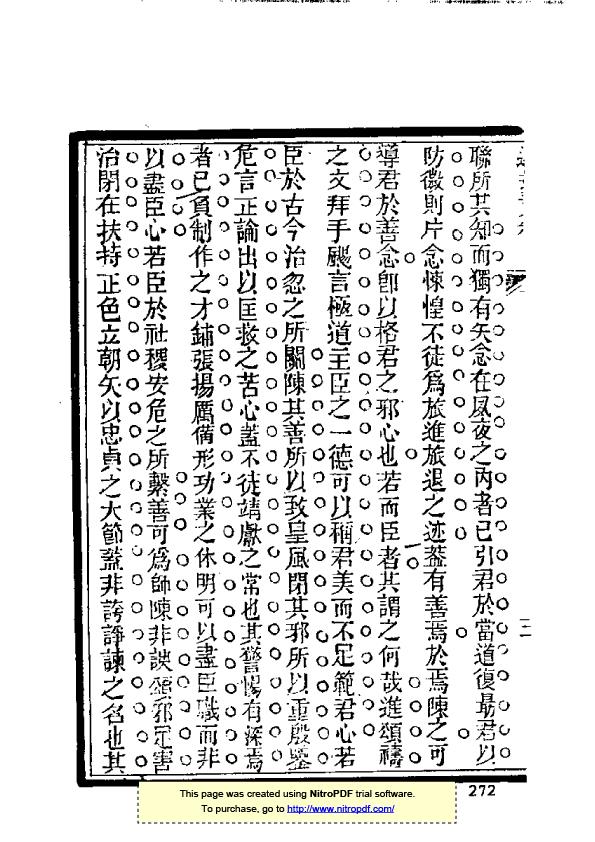 聯所其知而獨有矢念在夙夜之內者已引君於當道復勗君以
防微則片念悚惶不徒爲旅進旅退之迹葢有善焉於焉陳之可
導君於善念卽以格君之邪心也若而臣者其謂之何哉進頌禱
之文拜手颺言極道主臣之一德可以稱君美而不足範君心若
臣於古今治忽之所關陳其善所以致皇風閉其邪所以重殷鑒
危言正論出以匡救之苦心蓋不徒靖獻之常也其警惕有深焉
者已負制作之才鋪張揚厲備形功業之休明可以盡臣職而非
以盡臣心若臣於社稷安危之所繫善可爲師陳非諛頌邪足害
治閉在扶持正色立朝矢以忠貞之大節葢非誇諍諫之名也其
272
This page was created using NitroPDF trial software.
To purchase, go to http://www.nitropdf.com/